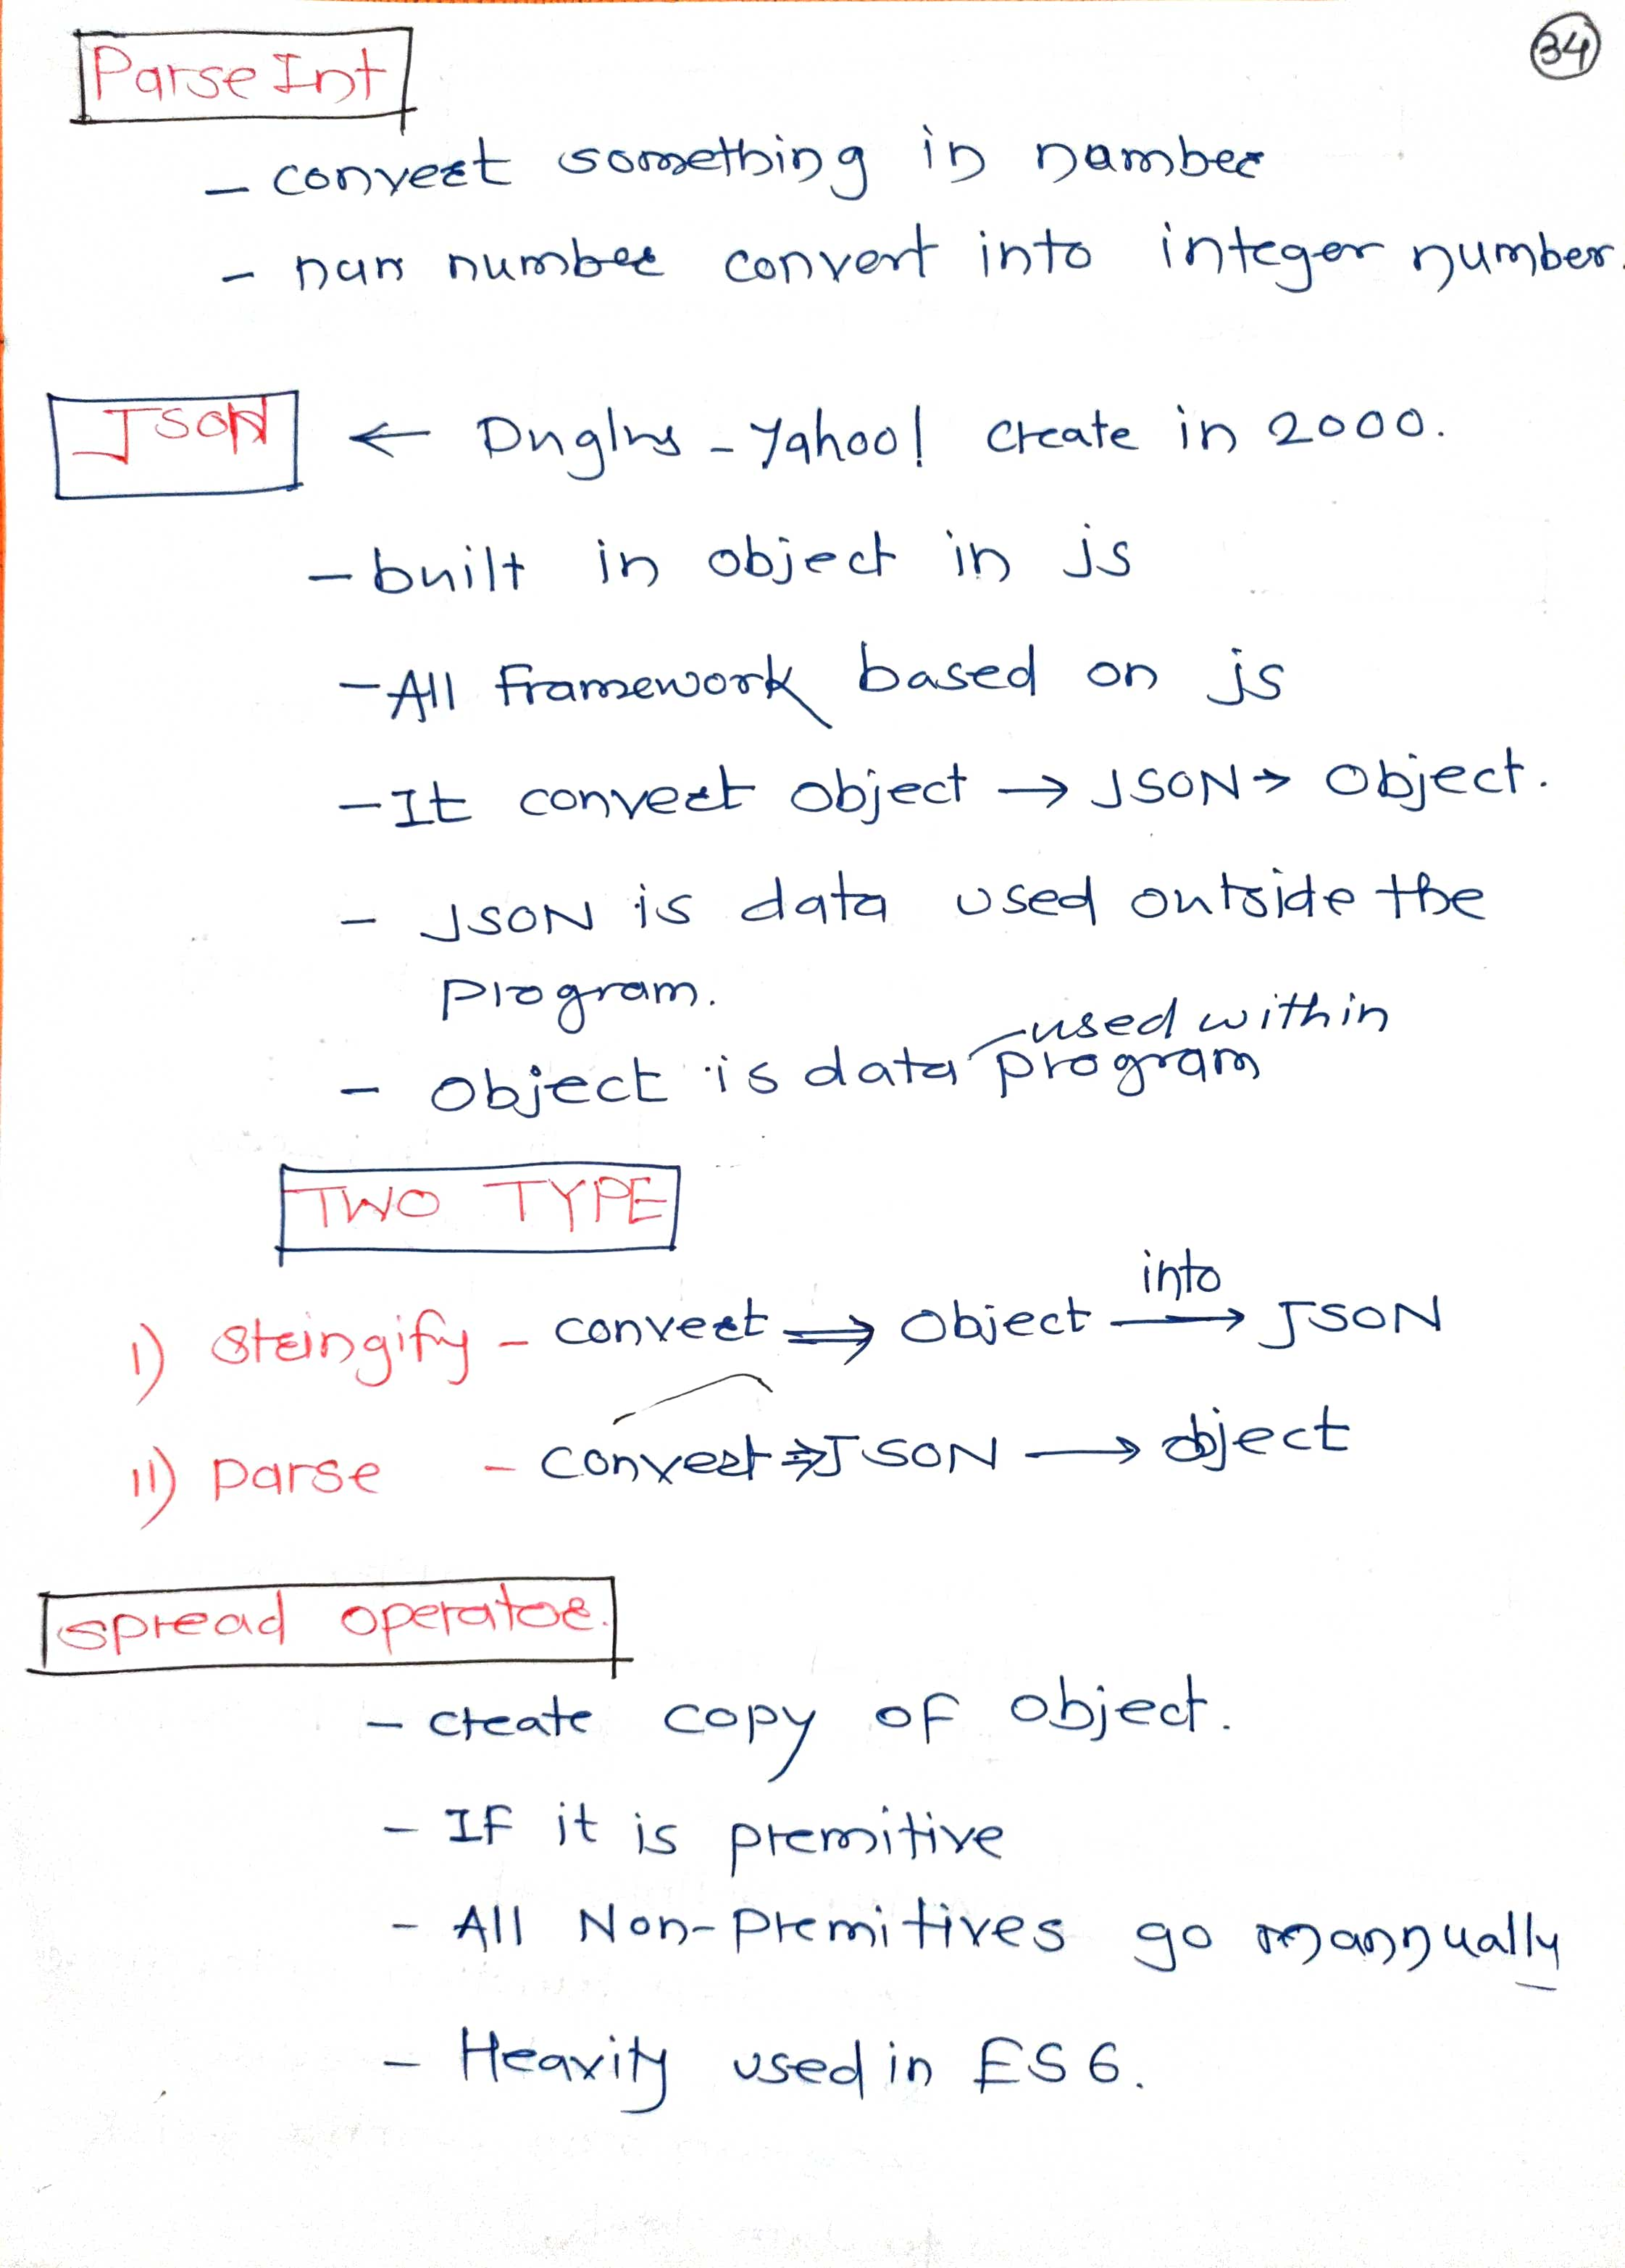 34
ParseInt
- convert something in namber
- nan number convert into integer number.
JSON ← - Yahoo! create in 2000.
- built in object in js
- All framework based on js
- It convert object → JSON → Object.
- JSON is data used outside the
program.
used within
- Object is data program
TWO TYPE
into
i) Stringify - convert ⇒ Object → JSON
ii) parse - convert ⇒ JSON → object
spread operator.
- create copy of object.
- If it is premitive
- All Non-premitives go mannually
- Heavity used in ES6.